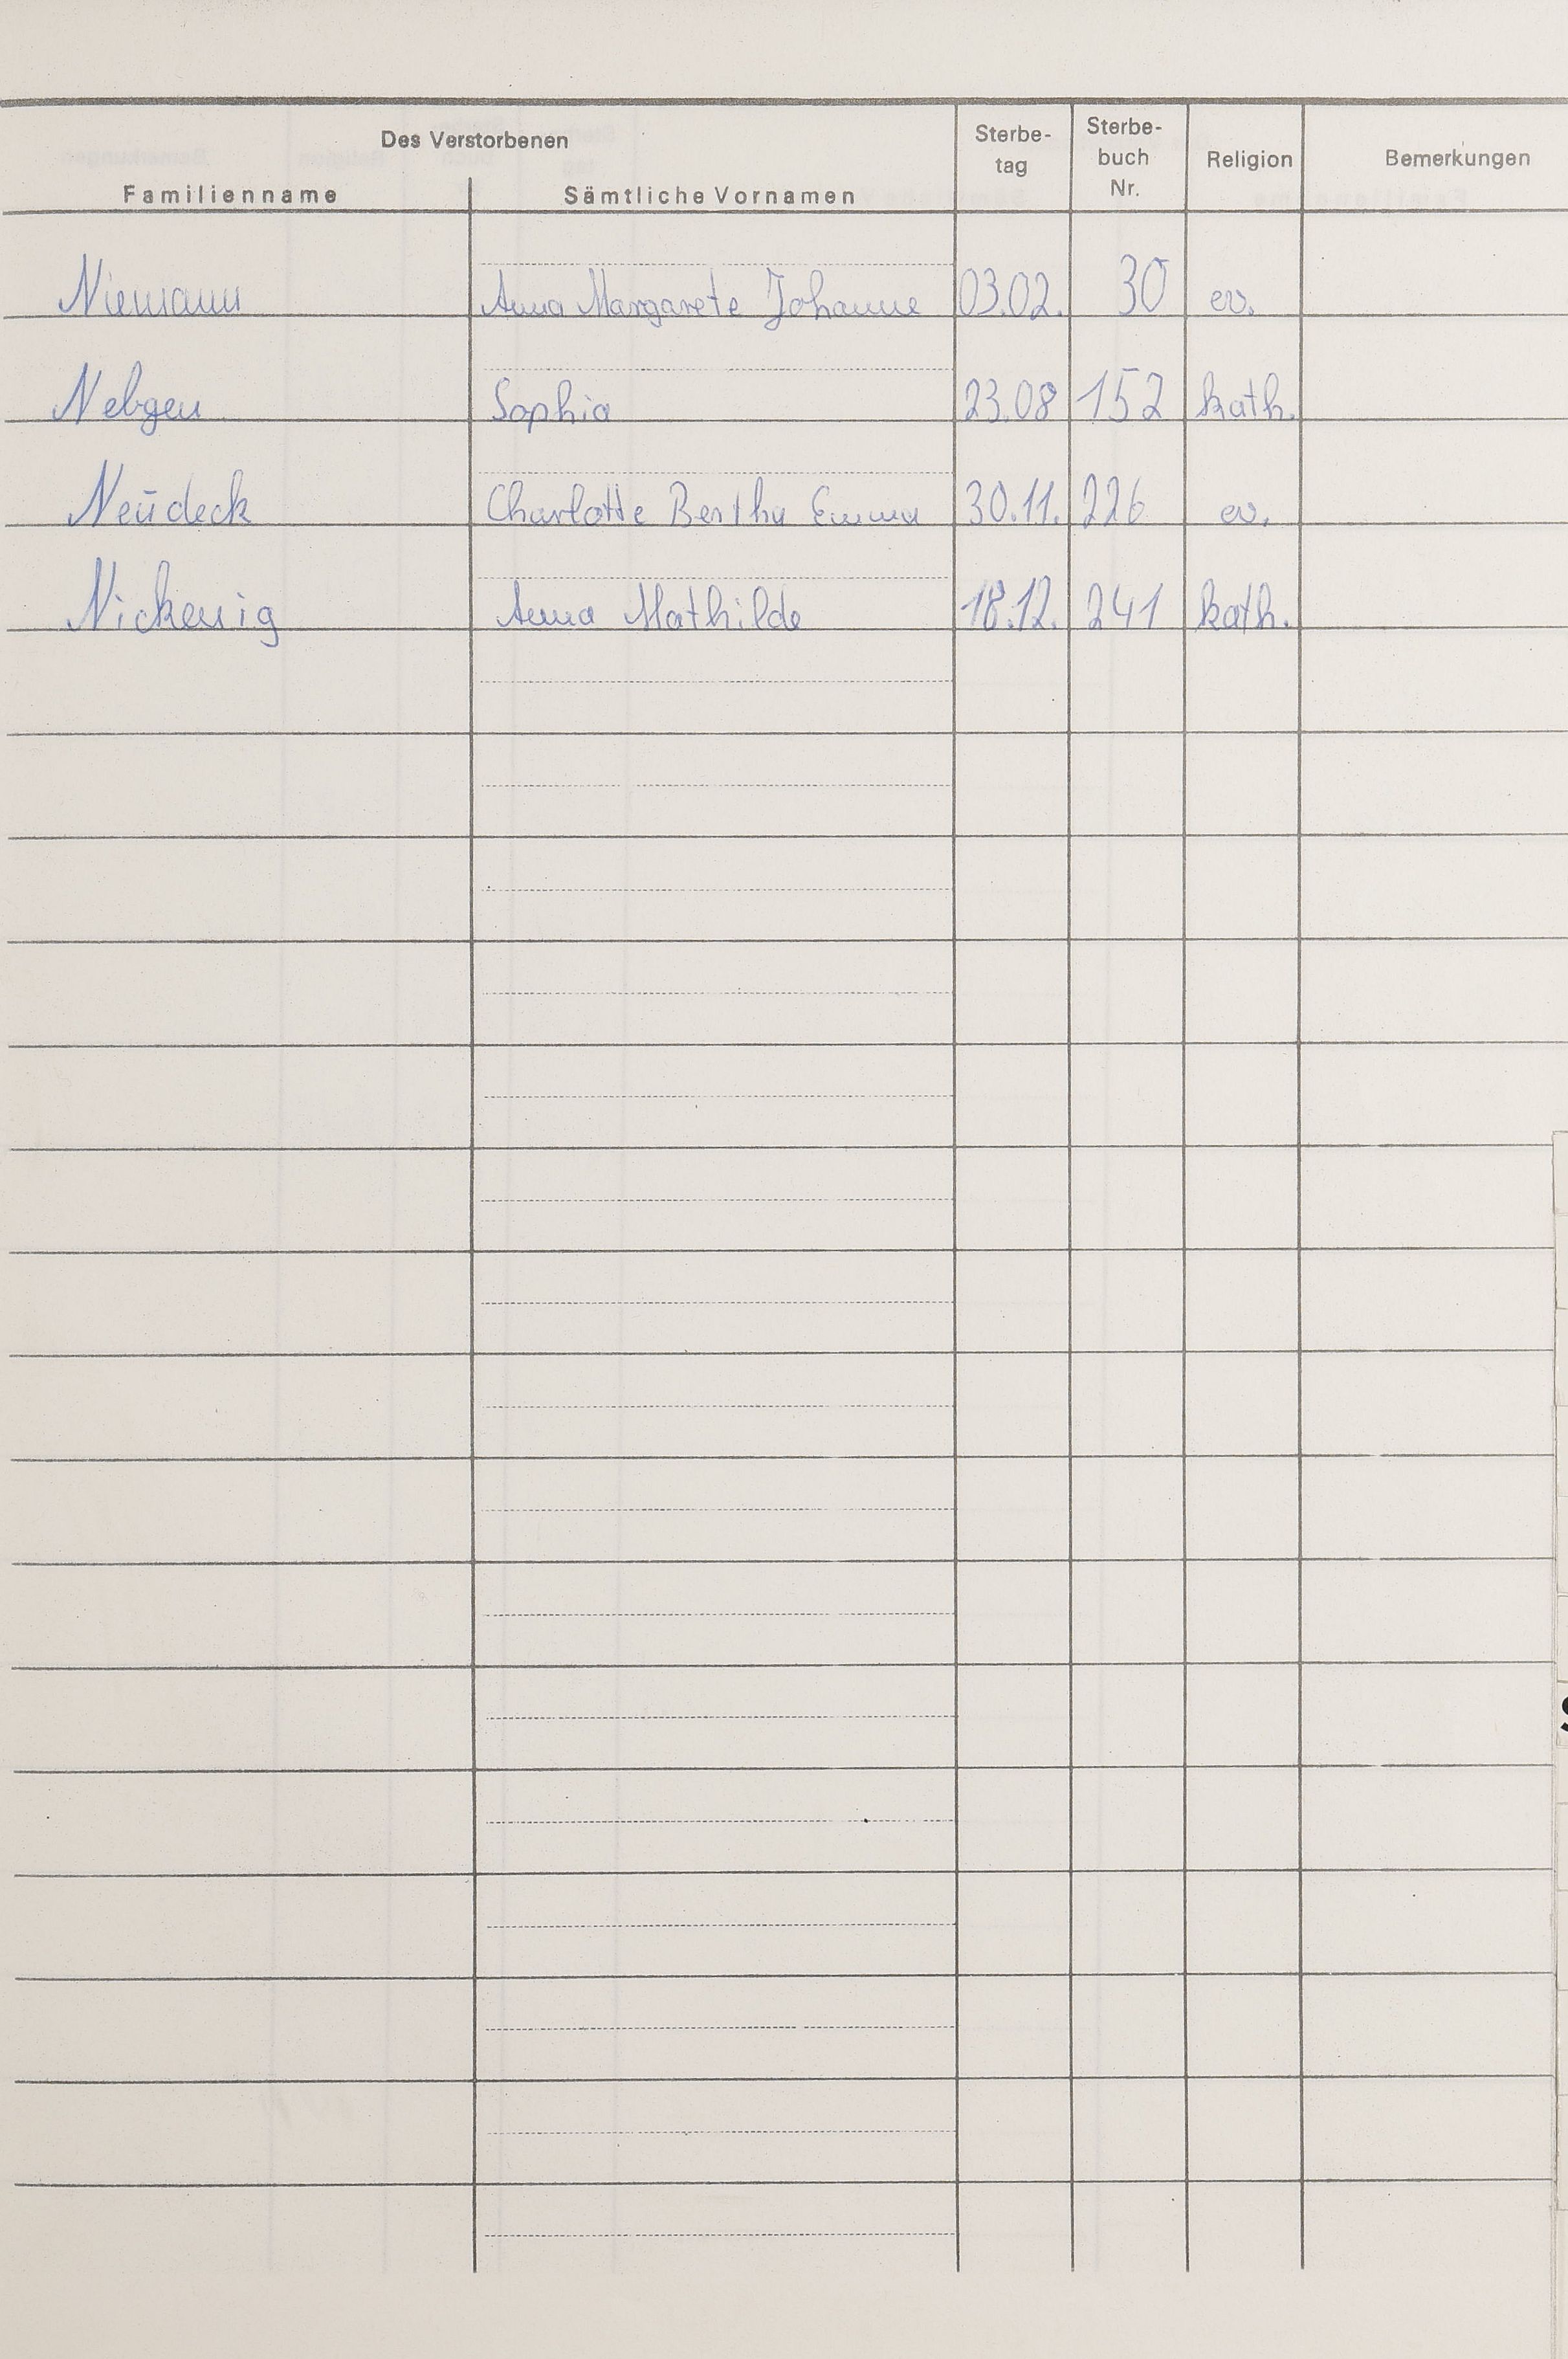 Des Verstorbenen
Familienname Sämtliche Vornamen Sterbe-tag Sterbe-buch Nr. Religion Bemerkungen
Niemann Anna Margarete Johanne 03.02. 30 ev.
Nebgen Sophia 23.08 152 kath.
Neudeck Charlotte Bertha Emma 30.11. 226 ev.
Nickenig Anna Mathilde 18.12. 241 kath.